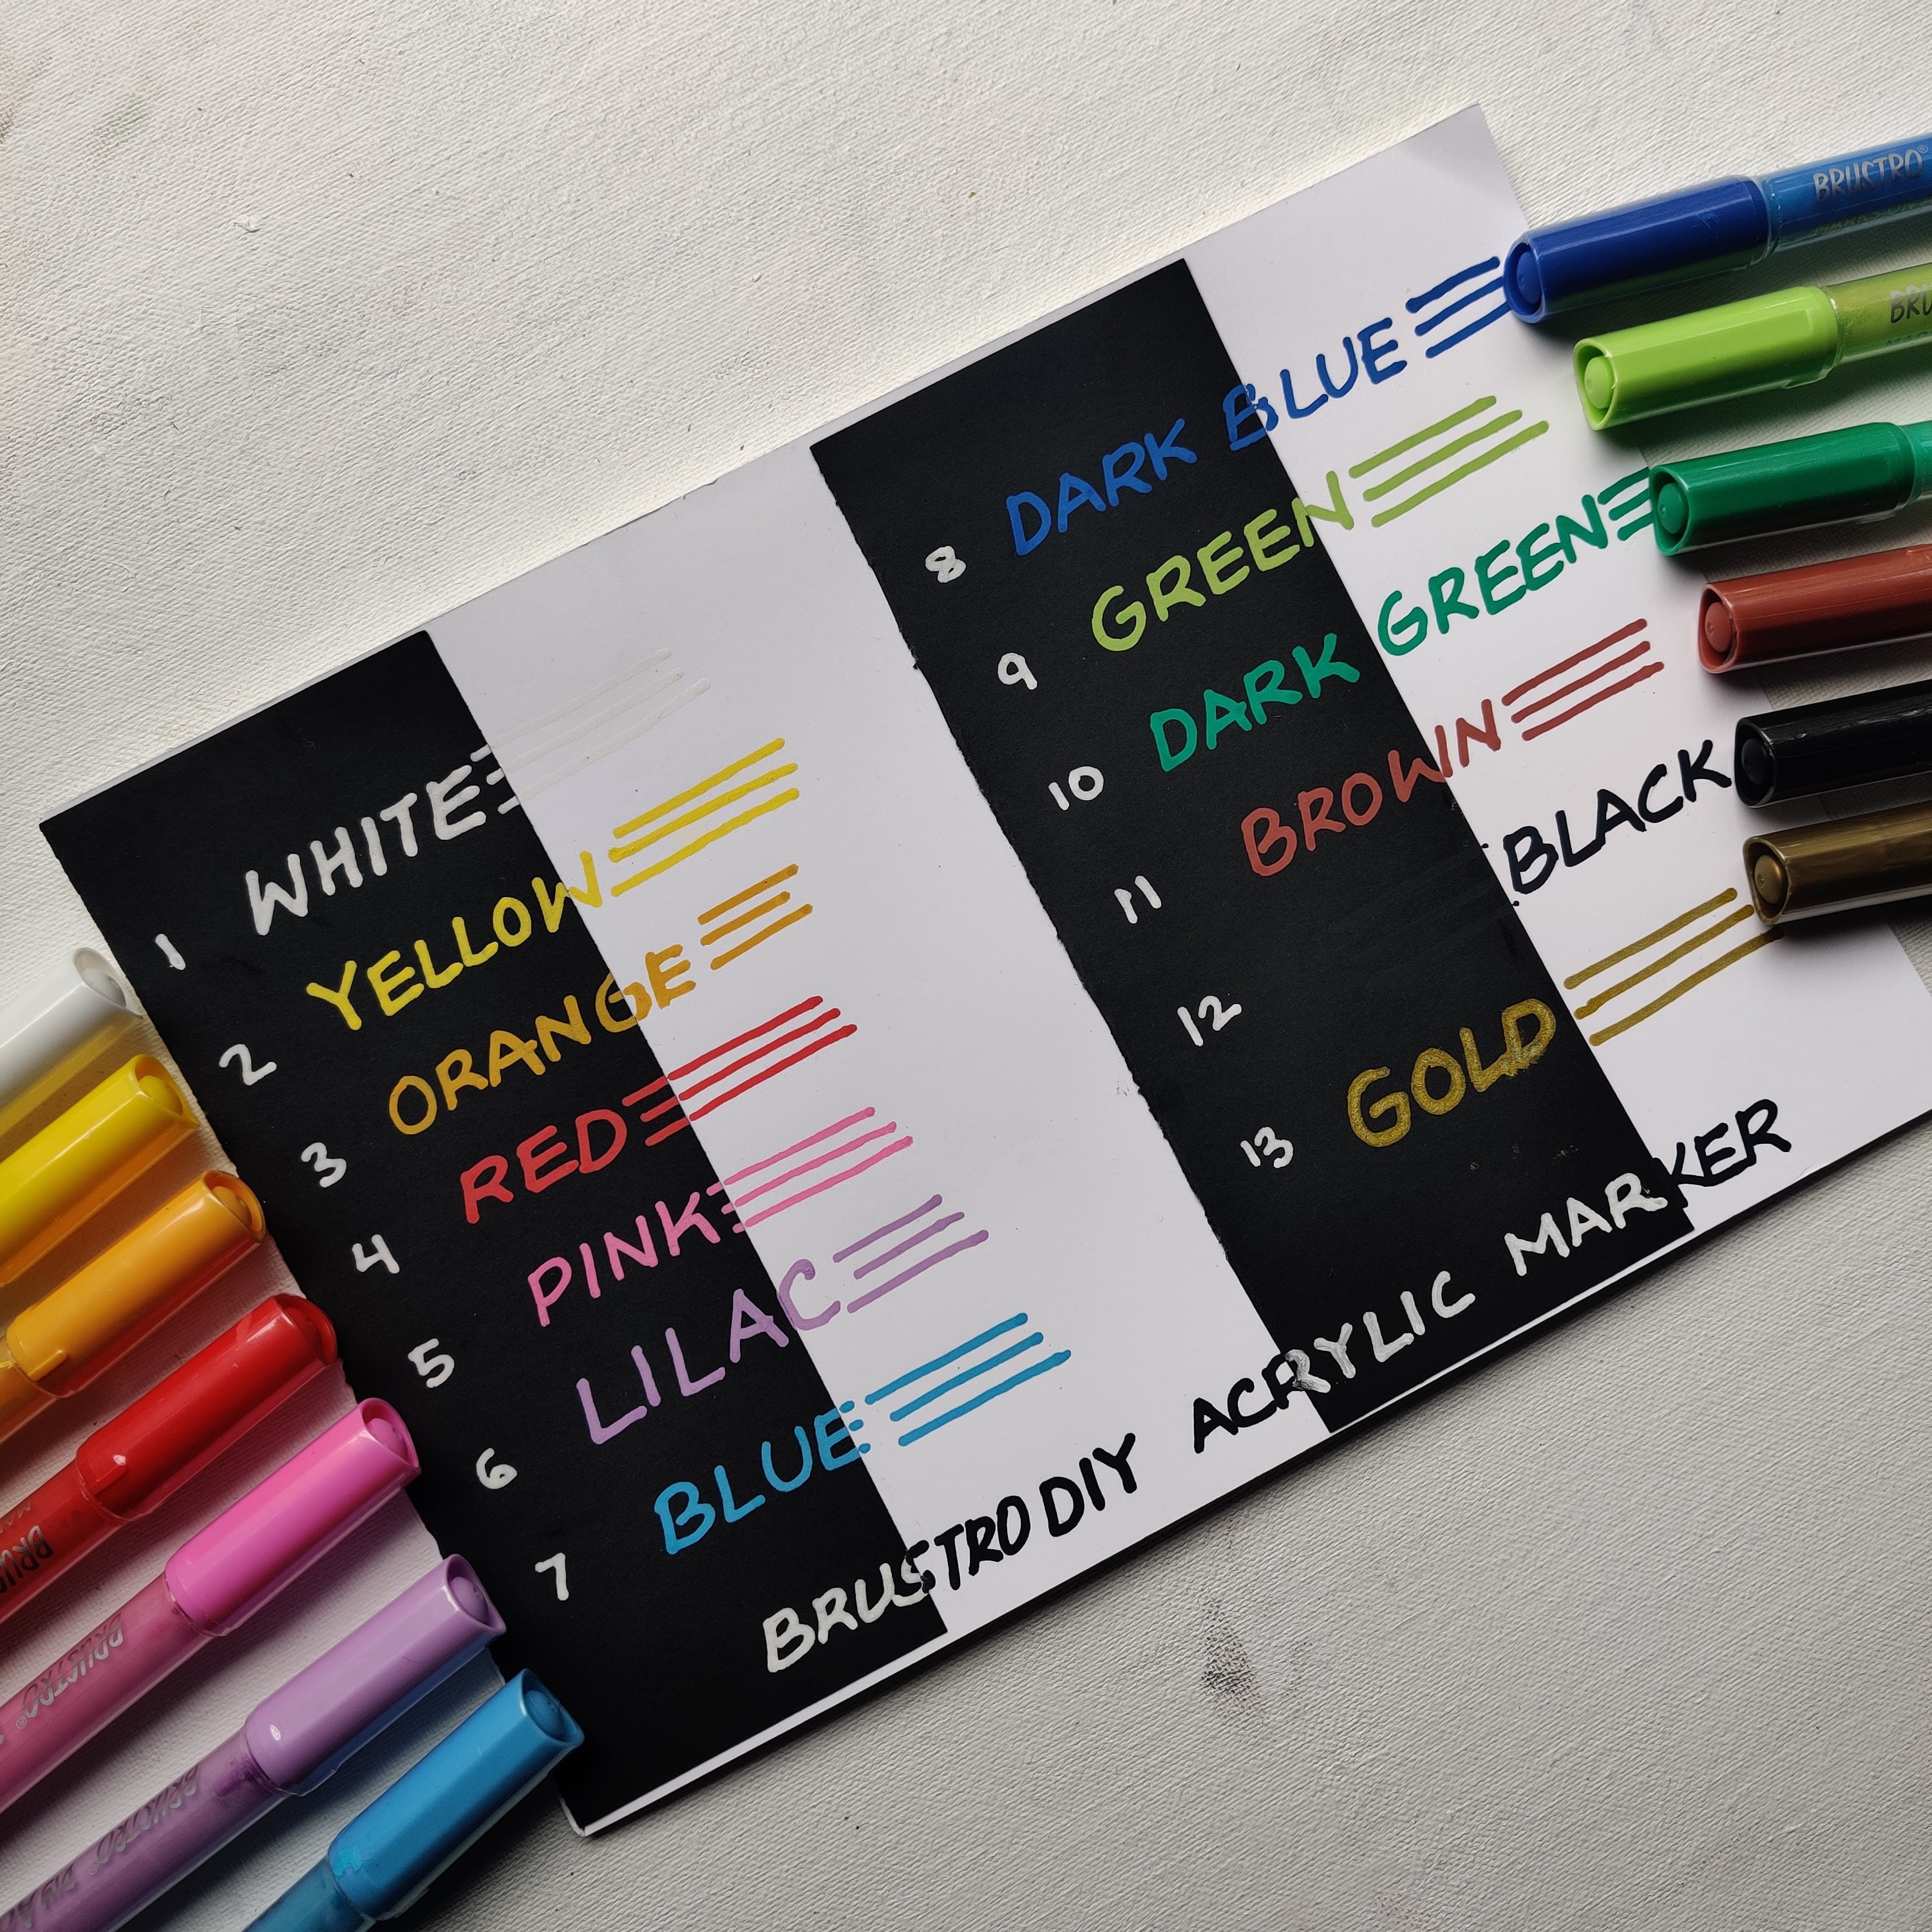 1 WHITE
2 YELLOW
3 ORANGE
4 RED
5 PINK
6 LILAC
7 BLUE
8 DARK BLUE
9 GREEN
10 DARK GREEN
11 BROWN
12 BLACK
13 GOLD
BRUSTRO DIY ACRYLIC MARKER
BRUSTRO®
BRUSTRO®
BRUSTRO